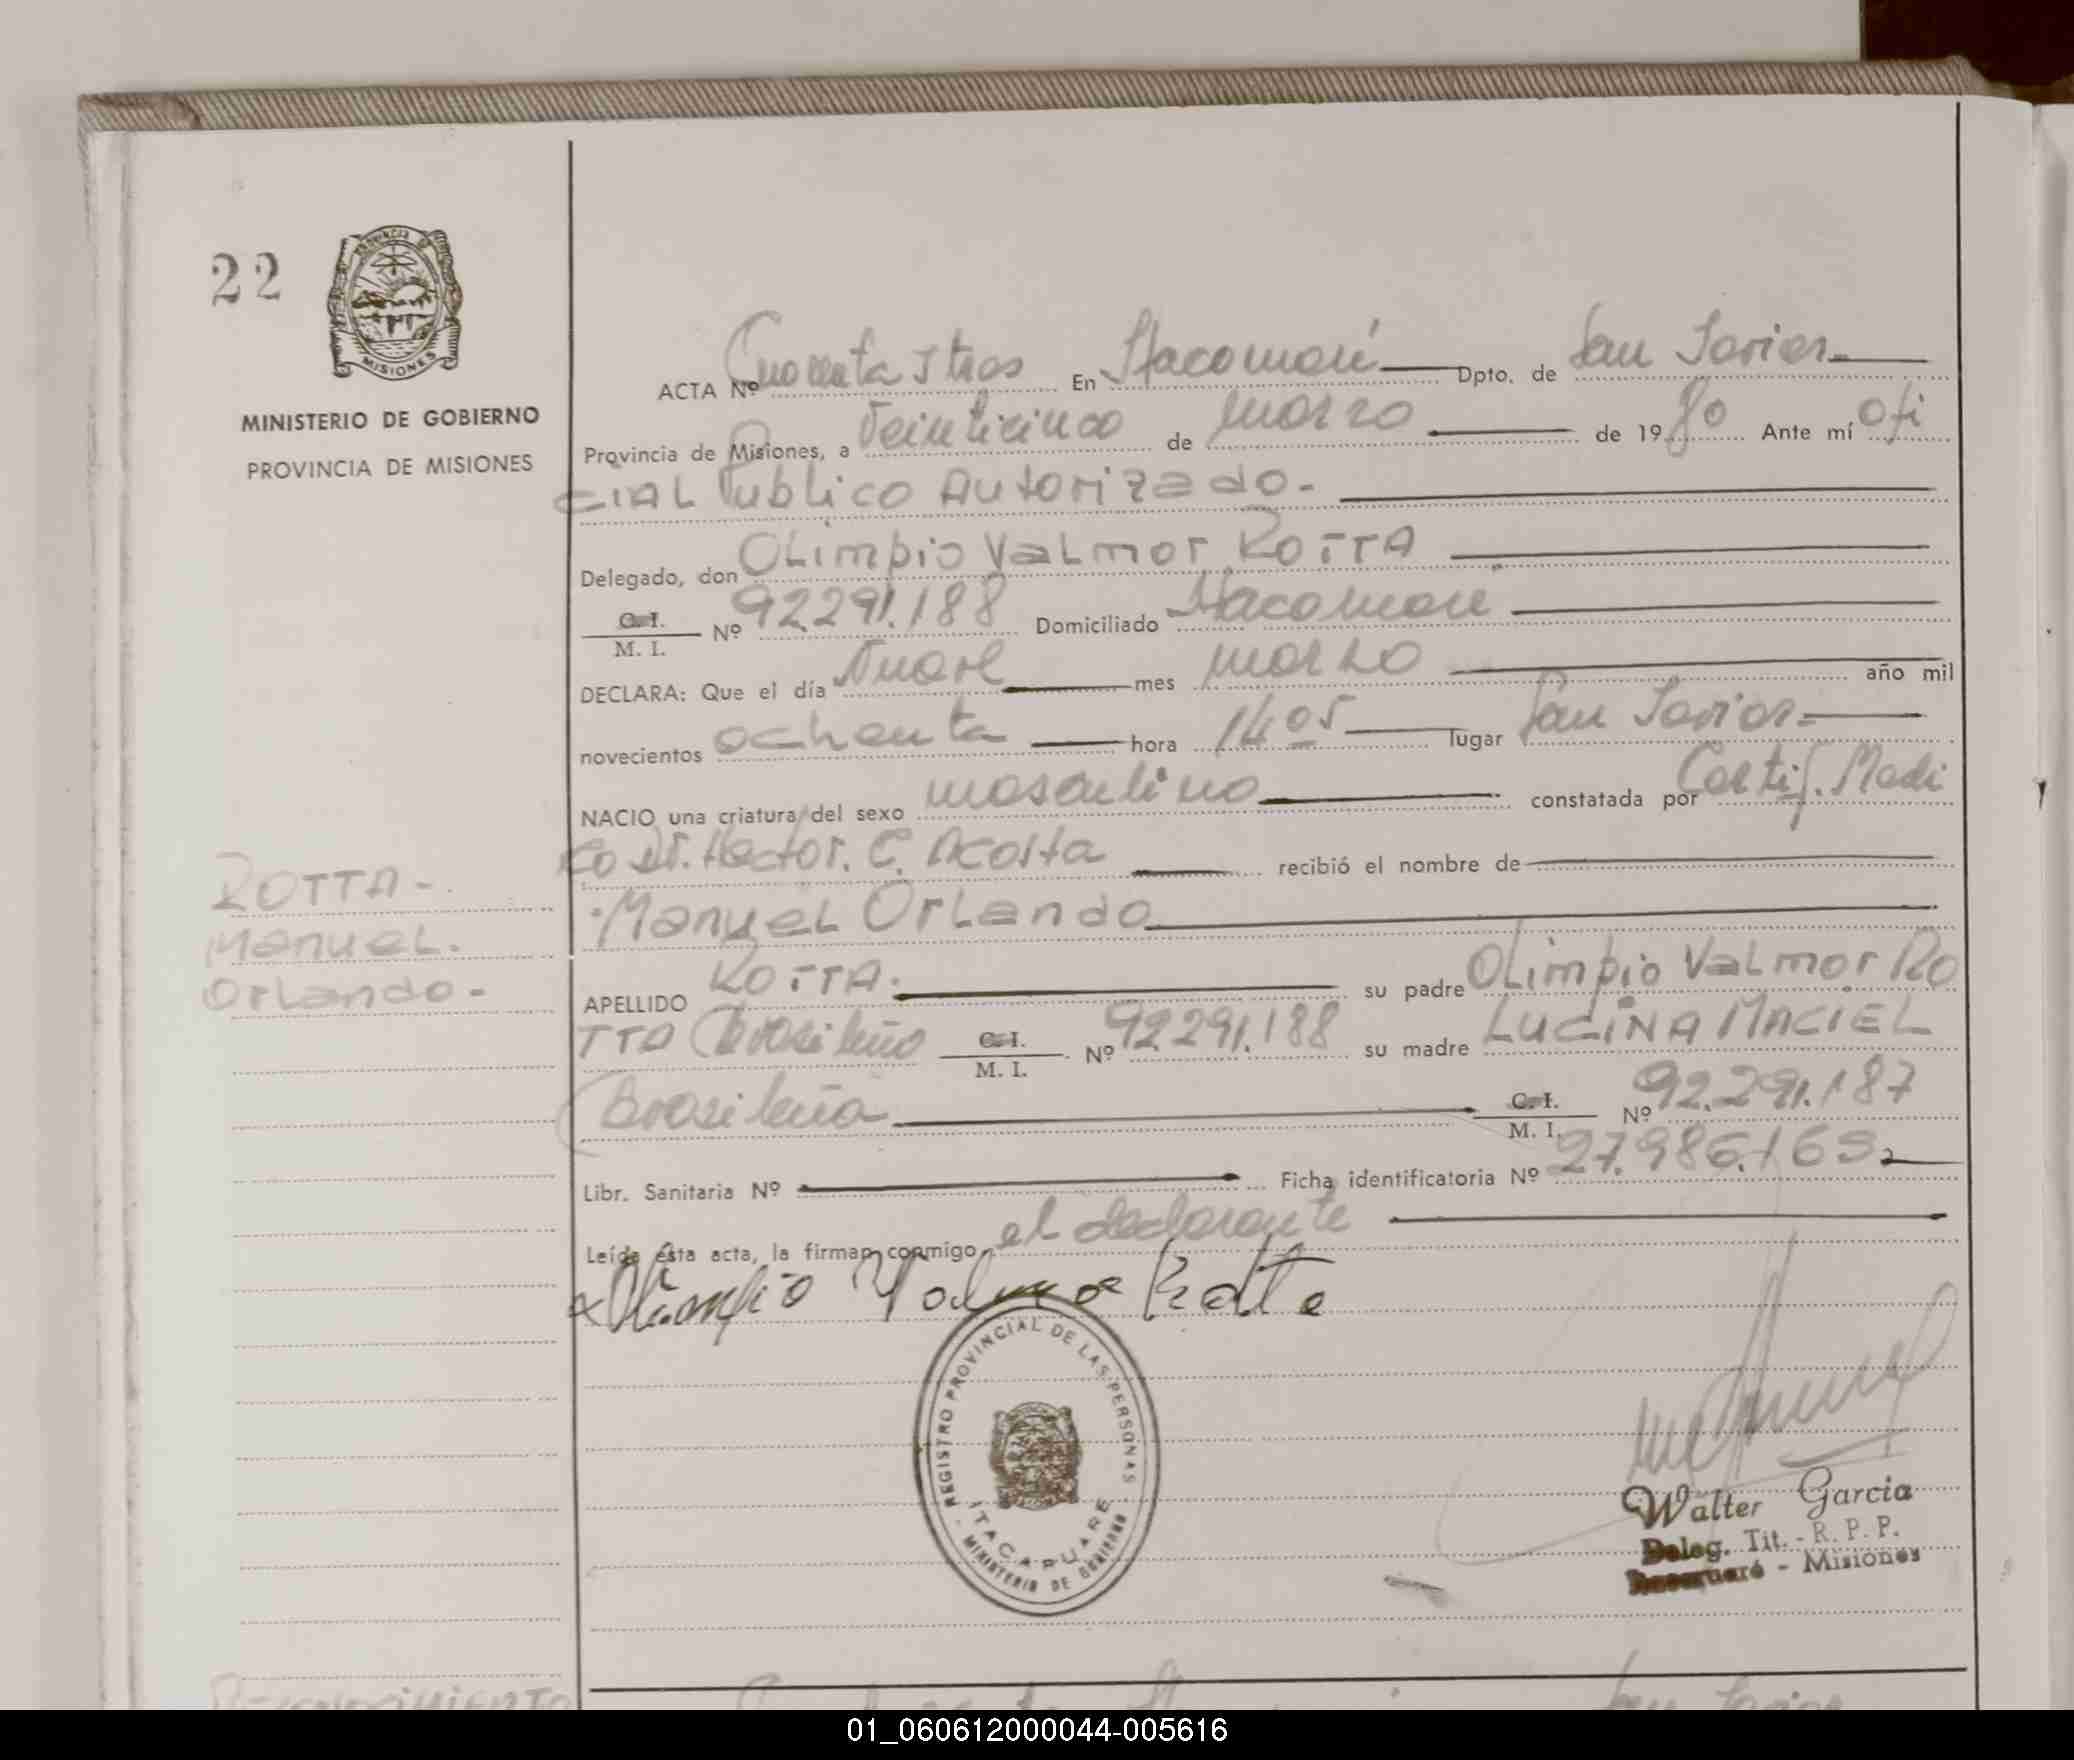 22
PROVINCIA DE
MISIONES
MINISTERIO DE GOBIERNO
PROVINCIA DE MISIONES
ACTA Nº Cuarenta y tres En Itacaruaré Dpto. de San Javier
Provincia de Misiones, a Veinticinco de marzo de 1980 Ante mí Ofi
CIAL Publico Autorizado.-
Delegado, don OLimpio VaLmor ROTTA
C. I.
M. I. Nº 92.291.188 Domiciliado Itacaruare
DECLARA: Que el día Nueve mes marzo año mil
novecientos ochenta hora 14 05 lugar San Javier.-
NACIO una criatura del sexo masculino constatada por Certif. Medi
co Dr. Hector. C. Acosta recibió el nombre de
ManueL OrLando
APELLIDO ROTTA.- su padre OLimpio VaLmor Ro
TTA (Brasileño C. I.
M. I. Nº 92291.188 su madre LUCINA MACIEL
(Brasileña C. I.
M. I. Nº 92.291.187
Libr. Sanitaria Nº Ficha identificatoria Nº 27.986.169
Leída ésta acta, la firman conmigo, el declarante
Olimpio Valmor Rotta
ROTTA-.
ManueL.
OrLando-
REGISTRO PROVINCIAL DE LAS PERSONAS
ITACARUARE
- MINISTERIO DE GOBIERNO
Walter Garcia
Deleg. Tit. - R. P. P.
- Misiones
Reconocimiento
San Javier
01_060612000044-005616